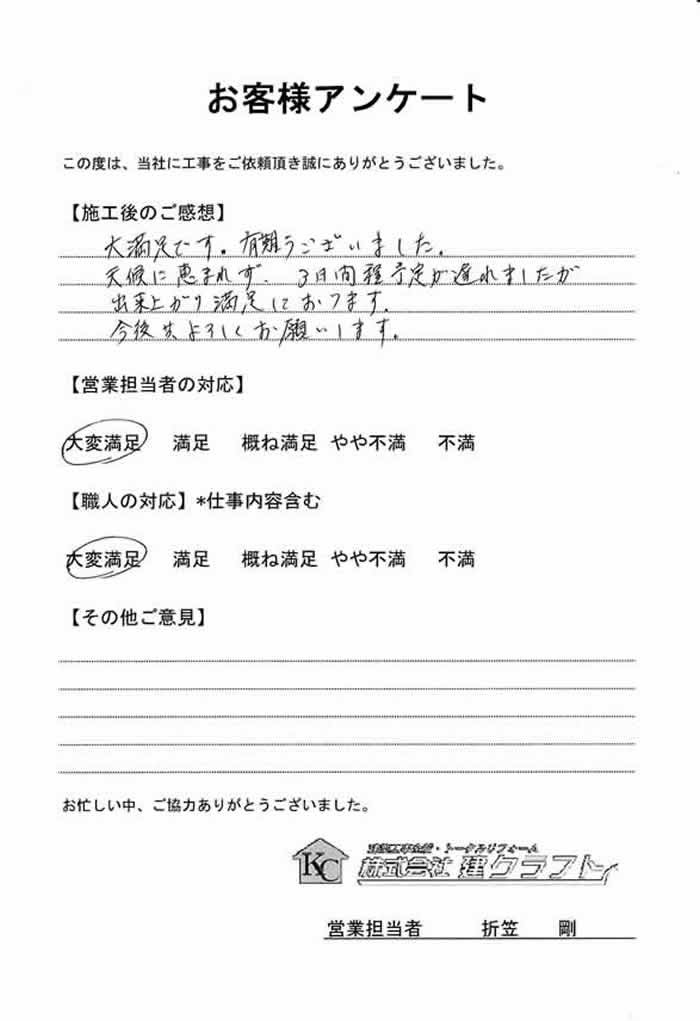 お客様アンケート
この度は、当社に工事をご依頼頂き誠にありがとうございました。
【施工後のご感想】
大満足です。有難うございました。
天候に恵まれず、3日間程予定が遅れましたが
出来上がり満足しております。
今後共よろしくお願いします。
【営業担当者の対応】
大変満足 満足 概ね満足 やや不満 不満
【職人の対応】*仕事内容含む
大変満足 満足 概ね満足 やや不満 不満
【その他ご意見】
お忙しい中、ご協力ありがとうございました。
KC
・トータルリフォーム
株式会社 建クラフト
営業担当者 折笠 剛